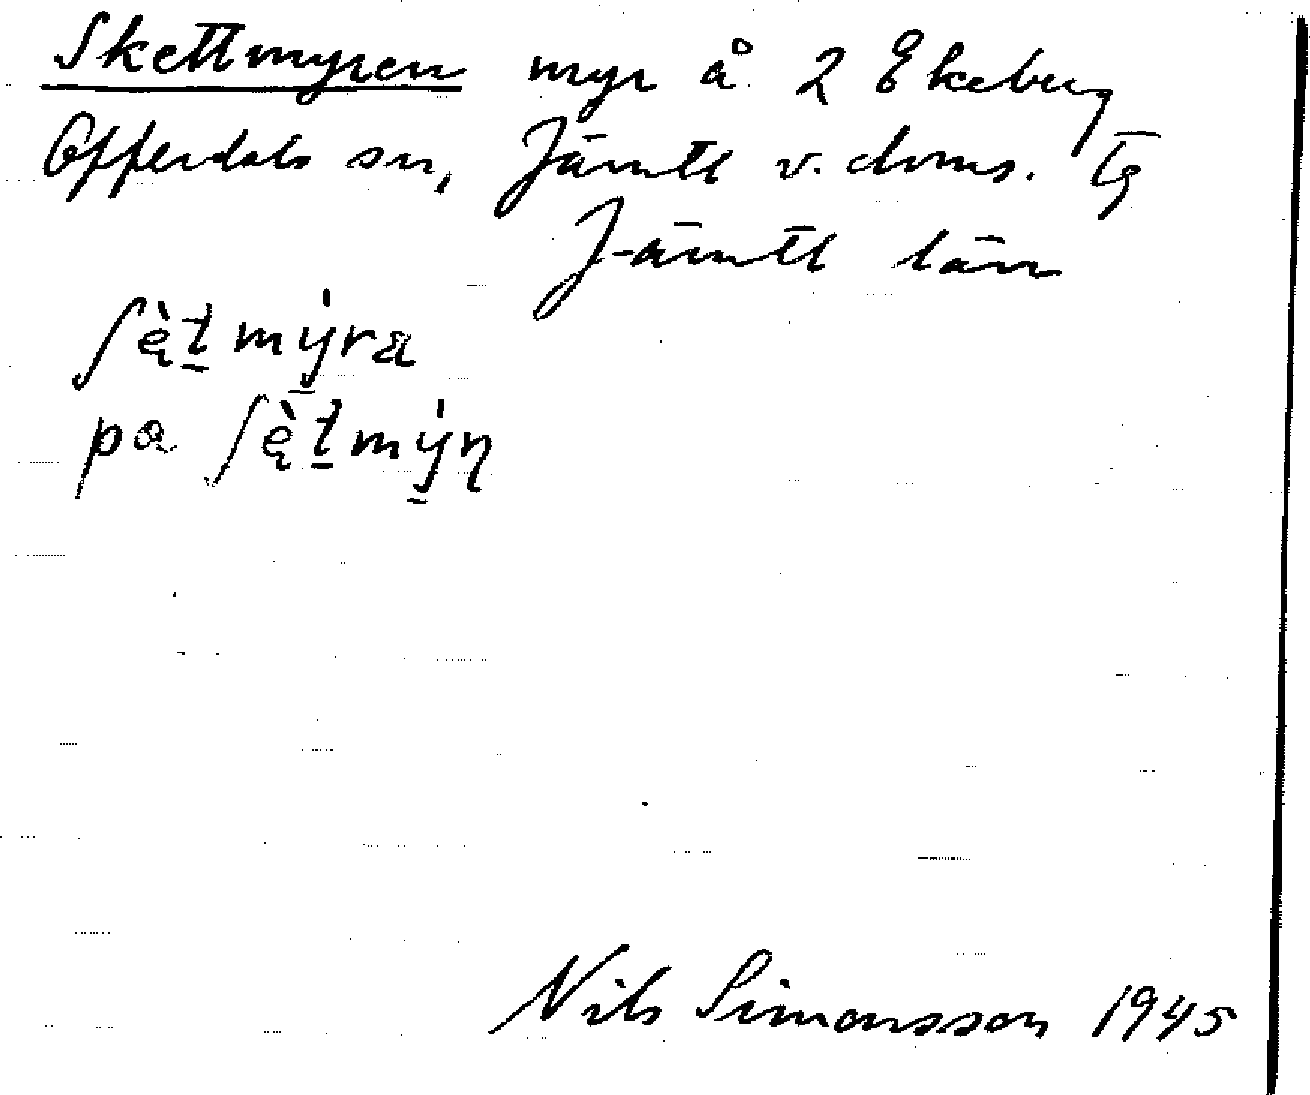 Skettmyren myr å 2 Ekeberg
Offerdals sn, Jämtl v. doms. Tg
Jämtl län
ʃę̀t̠ my̠̍ra
pa ʃę̀t̠my̠̍ŋ
Nils Simonsson 1945